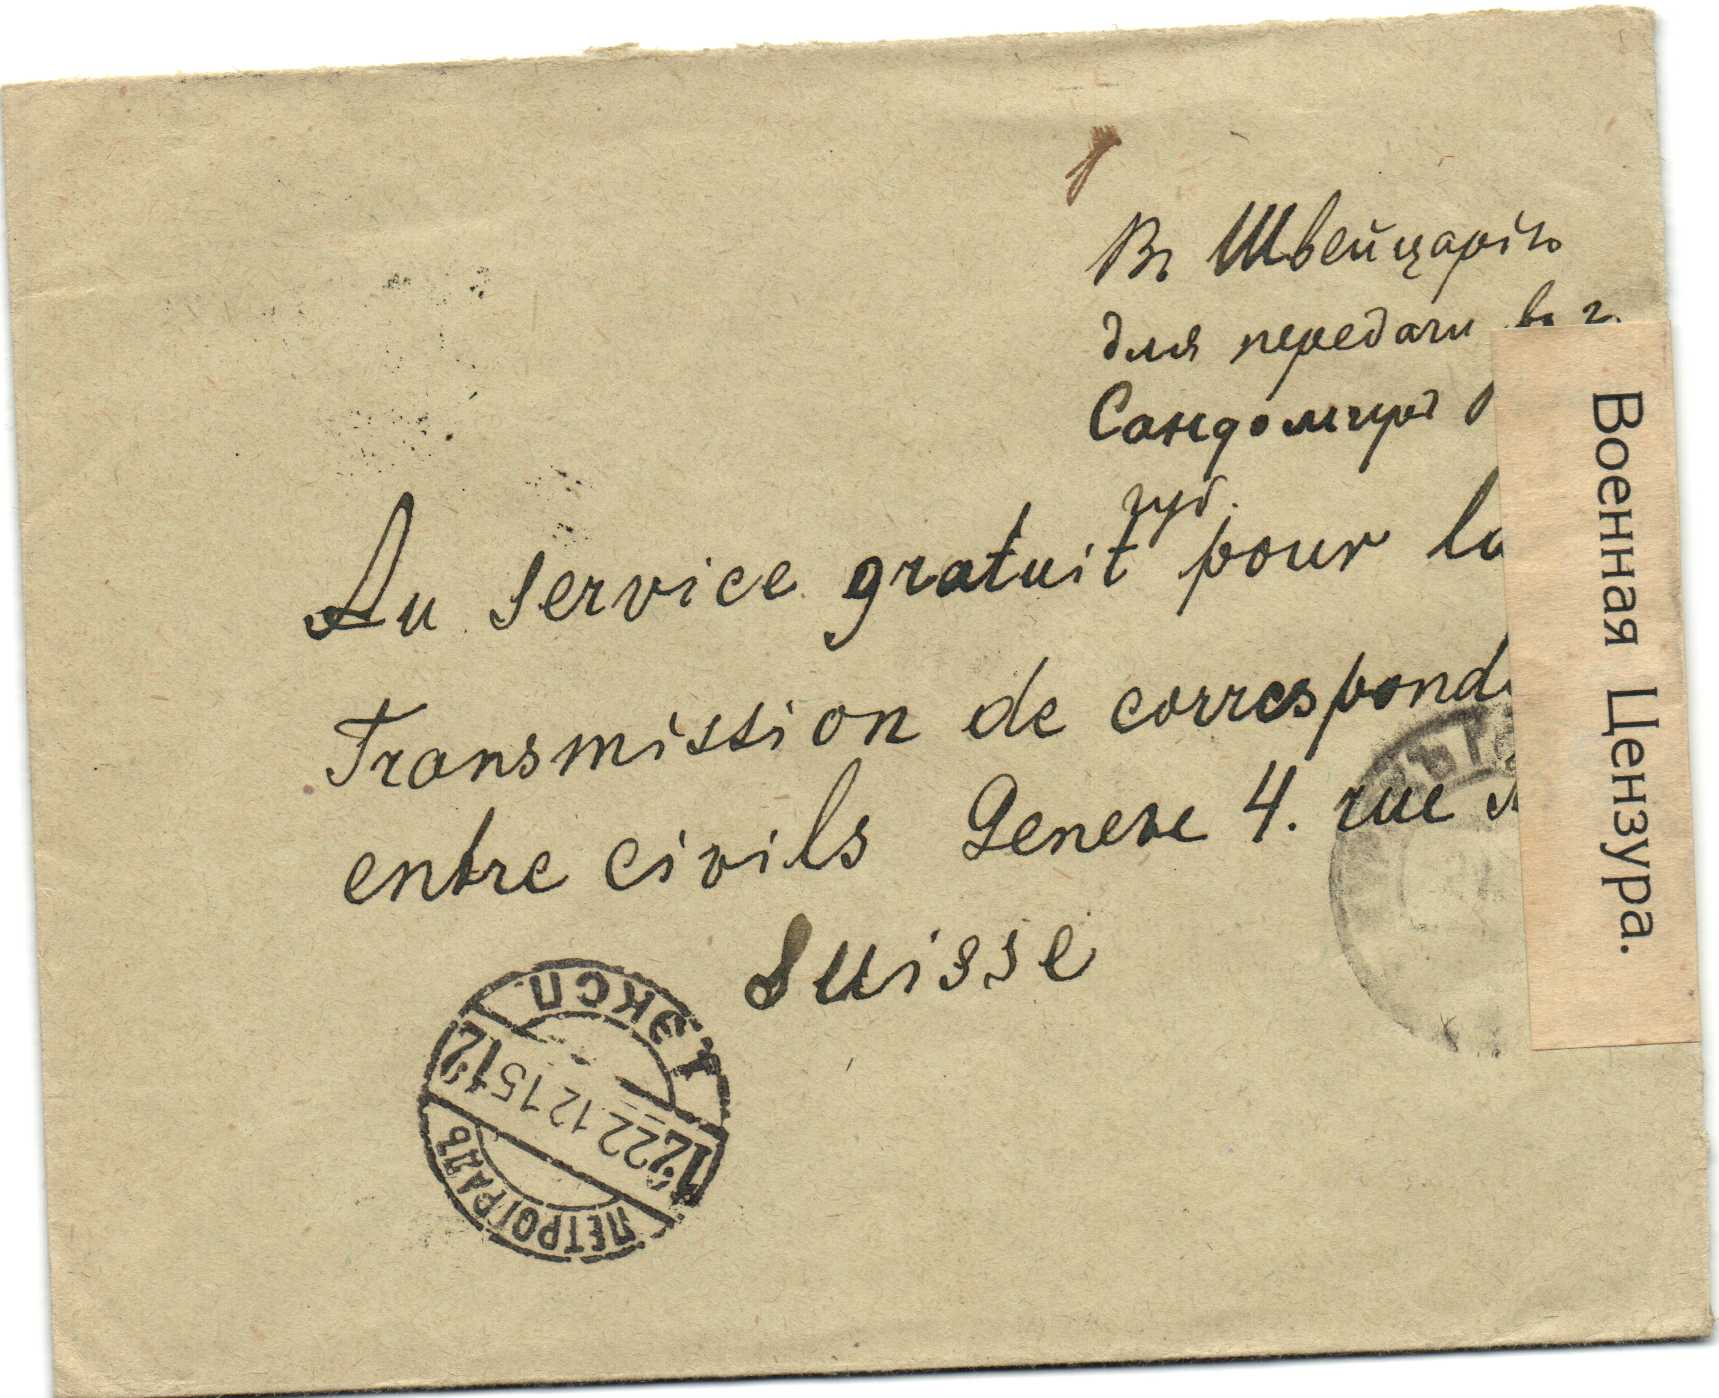 Въ Швейцарію
для передачи въ г.
Сандомиръ
губ.
Au service gratuit pour la
Transmission de correspond
entre civils Geneve 4. rue
Suisse
Военная Цензура.
ПЕТРОГРАДЪ
12 22 12 15 12
ЭКСП